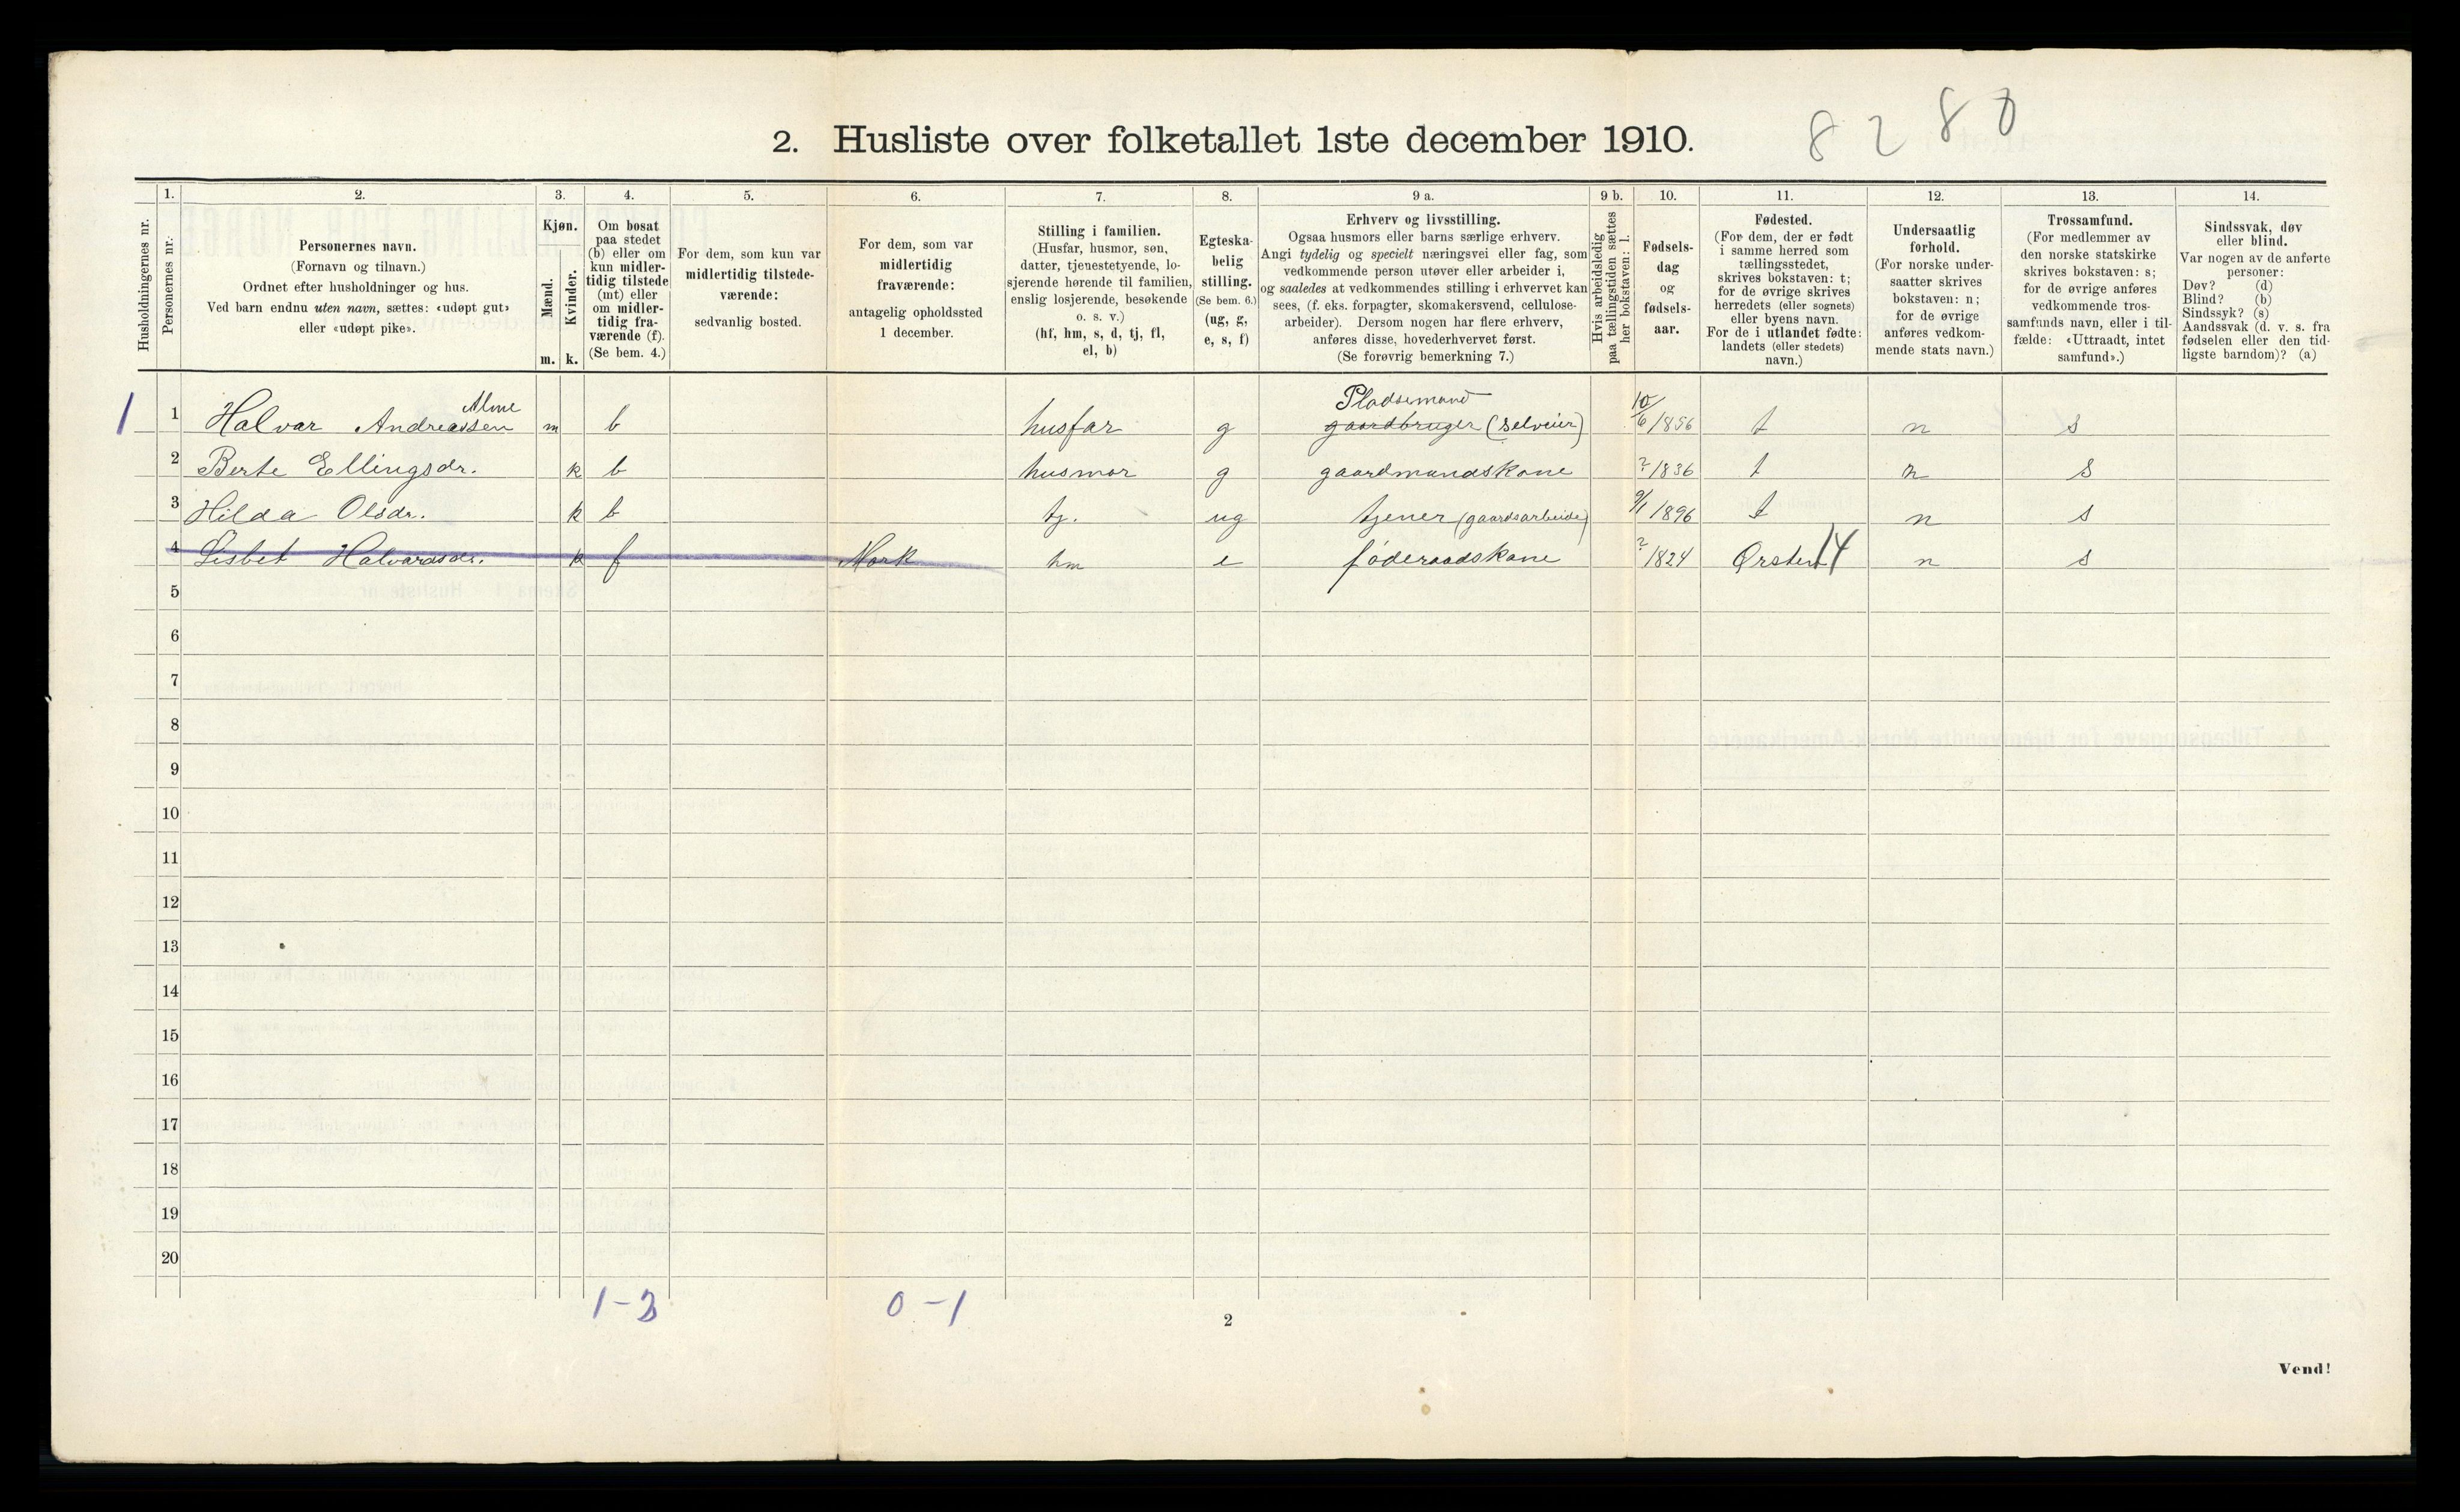 2. Husliste over folketallet 1ste december 1910.
8 2 8 0
Husholdningernes nr.
1.
Personernes nr.
2.
Personernes navn.
(Fornavn og tilnavn.)
Ordnet efter husholdninger og hus.
Ved barn endnu uten navn, sættes: «udøpt gut»
eller «udøpt pike».
3.
Kjøn.
Mænd.
Kvinder.
m. k.
4.
Om bosat
paa stedet
(b) eller om
kun midler-
tidig tilstede
(mt) eller
om midler-
tidig fra-
værende (f).
(Se bem. 4.)
5.
For dem, som kun var
midlertidig tilstede-
værende:
sedvanlig bosted.
6.
For dem, som var
midlertidig
fraværende:
antagelig opholdssted
1 december.
7.
Stilling i familien.
(Husfar, husmor, søn,
datter, tjenestetyende, lo-
sjerende hørende til familien,
enslig losjerende, besøkende
o. s. v.)
(hf, hm, s, d, tj, fl,
el, b)
8.
Egteska-
belig
stilling.
(Se bem. 6.)
(ug, g,
e, s, f)
9 a.
Erhverv og livsstilling.
Ogsaa husmors eller barns særlige erhverv.
Angi tydelig og specielt næringsvei eller fag, som
vedkommende person utøver eller arbeider i,
og saaledes at vedkommendes stilling i erhvervet kan
sees, (f. eks. forpagter, skomakersvend, cellulose-
arbeider). Dersom nogen har flere erhverv,
anføres disse, hovederhvervet først.
(Se forøvrig bemerkning 7.)
9 b.
Hvis arbeidsledig
paa tællingstiden sættes
her bokstaven: l.
10.
Fødsels-
dag
og
fødsels-
aar.
11.
Fødested.
(For dem, der er født
i samme herred som
tællingsstedet,
skrives bokstaven: t;
for de øvrige skrives
herredets (eller sognets)
eller byens navn.
For de i utlandet fødte:
landets (eller stedets)
navn.)
12.
Undersaatlig
forhold.
(For norske under-
saatter skrives
bokstaven: n;
for de øvrige
anføres vedkom-
mende stats navn.)
13.
Trossamfund.
(For medlemmer av
den norske statskirke
skrives bokstaven: s;
for de øvrige anføres
vedkommende tros-
samfunds navn, eller i til-
fælde: «Uttraadt, intet
samfund».)
14.
Sindssvak, døv
eller blind.
Var nogen av de anførte
personer:
Døv? (d)
Blind? (b)
Sindssyk? (s)
Aandssvak (d. v. s. fra
fødselen eller den tid-
ligste barndom)? (a)
Alme Pladsemand
1 1 Halvar Andreassen m b husfar g gaardbruger (selveier) 10/6 /1856 t n s
2 Berte Ellingsdr. k b husmor g gaardmandskone ? /1836 t n s
3 Hilda Olsdr. k b tj. ug tjener (gaardsarbeide) 9/1 /1896 t n s
4 Lisbet Halvardsdr. k f Mork hm e føderaadskone ? /1824 Ørsten 14 n s
5
6
7
8
9
10
11
12
13
14
15
16
17
18
19
20
1-3 0-1
2
Vend!